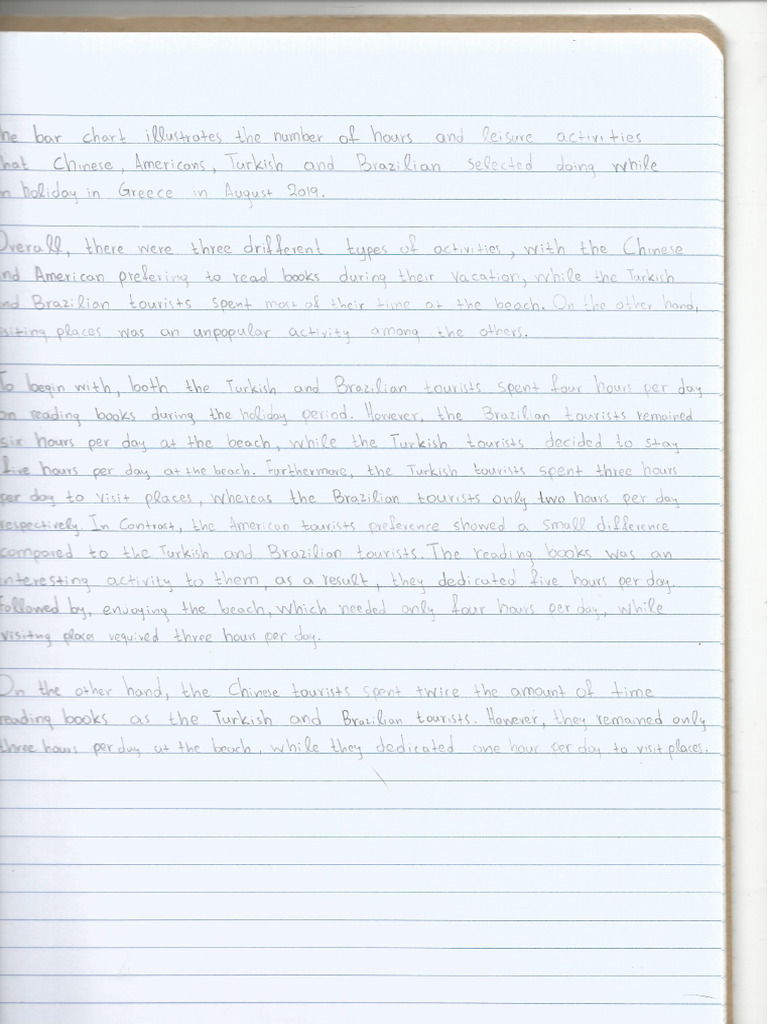 he bar chart illustrates the number of hours and leisure activities
hat Chinese, Americans, Turkish and Brazilian selected doing while
n holiday in Greece in August 2019.
Overall, there were three drifferent types of activities, with the Chinese
nd American prefering to read books during their vacation, while the Turkish
nd Brazilian tourists spent most of their time at the beach. On the other hand,
isiting places was an unpopular activity among the others.
To begin with, both the Turkish and Brazilian tourists spent four hours per day
on reading books during the holiday period. However, the Brazilian tourists remained
six hours per day at the beach, while the Turkish tourists decided to stay
five hours per day at the beach. Furthermore, the Turkish tourists spent three hours
per day to visit places, whereas the Brazilian tourists only two hours per day
respectively. In Contrast, the American tourists preference showed a small difference
compared to the Turkish and Brazilian tourists. The reading books was an
interesting activity to them, as a result, they dedicated five hours per day.
Followed by, enyoying the beach, which needed only four hours per day, while
visitng places required three hours per day.
On the other hand, the Chinese tourists spent twice the amount of time
reading books as the Turkish and Brazilian tourists. However, they remained only
three hours per day at the beach, while they dedicated one hour per day to visit places.